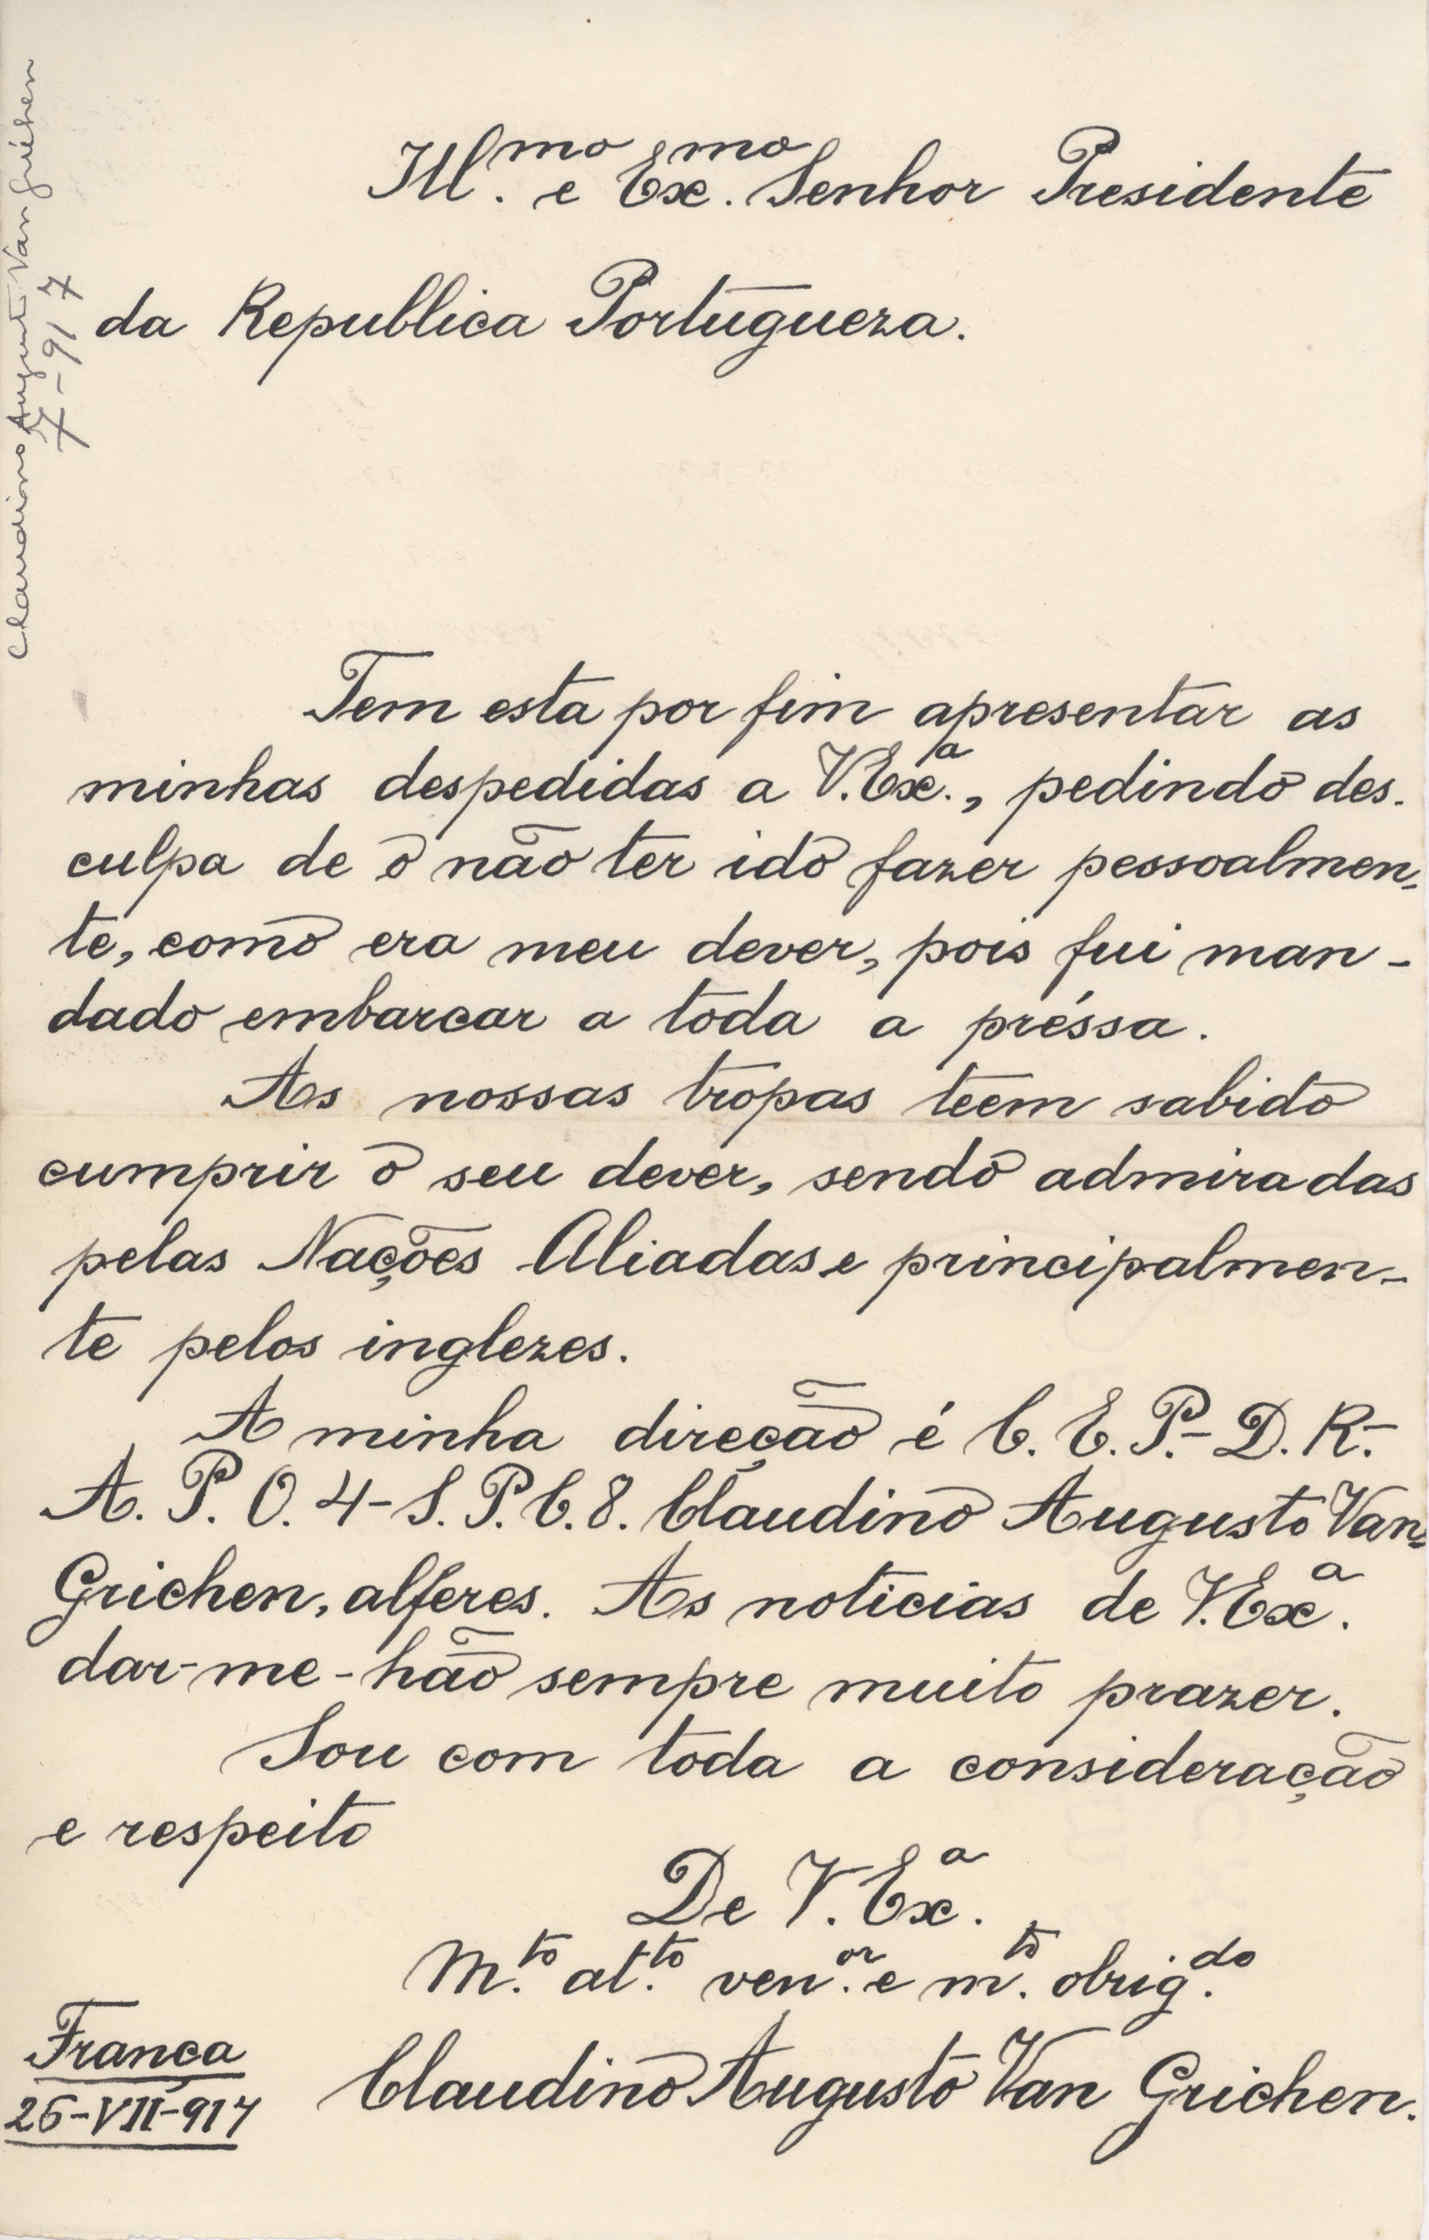 Claudino Augusto Van Griéhen
7-917
Ill.mo e Ex.mo Senhor Presidente
da Republica Portugueza.
Tem esta por fim apresentar as
minhas despedidas a V.Ex.a, pedindo des-
culpa de o não ter ido fazer pessoalmen-
te, como era meu dever, pois fui man-
dado embarcar a toda a préssa.
As nossas tropas teem sabido
cumprir o seu dever, sendo admiradas
pelas Nações Aliadas e principalmen-
te pelos inglezes.
A minha direção é C. E. P.- D. R.-
A. P. O. 4- S. P. C. 8. Claudino Augusto Van-
Grichen, alferes. As noticias de V.Ex.a
dar-me-hão sempre muito prazer.
Sou com toda a consideração
e respeito
De V. Ex.a
M.to at.to ven.or e m.to obrig.do
Claudino Augusto Van Grichen.
França
26-VII-917